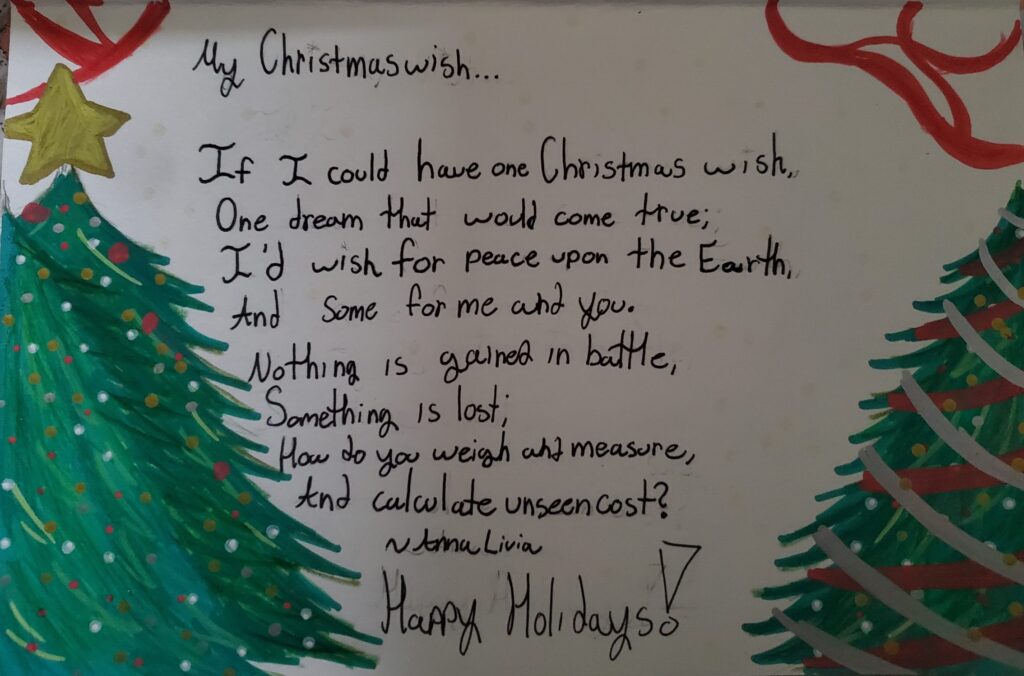 My Christmas wish...
If I could have one Christmas wish,
One dream that would come true;
I'd wish for peace upon the Earth,
And some for me and you.
Nothing is gained in battle,
Something is lost;
How do you weigh and measure,
And calculate unseen cost?
~ Anna Livia
Happy Holidays!